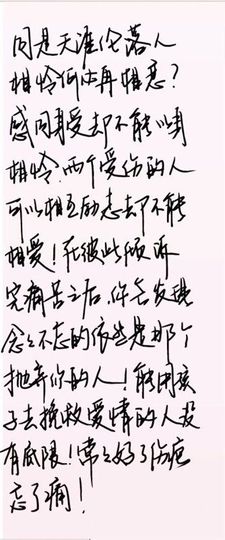 同是天涯伦落人
相怜何必再相恋？
感同身受却不能以身
相怜．两个受伤的人
可以相互励志却不能
相爱！在彼此倾诉
完痛苦之后．你会发现
念念不忘的依然是那个
抛弃你的人！能用孩
子去挽救爱情的人没
有底限！常常好了伤疤
忘了痛！